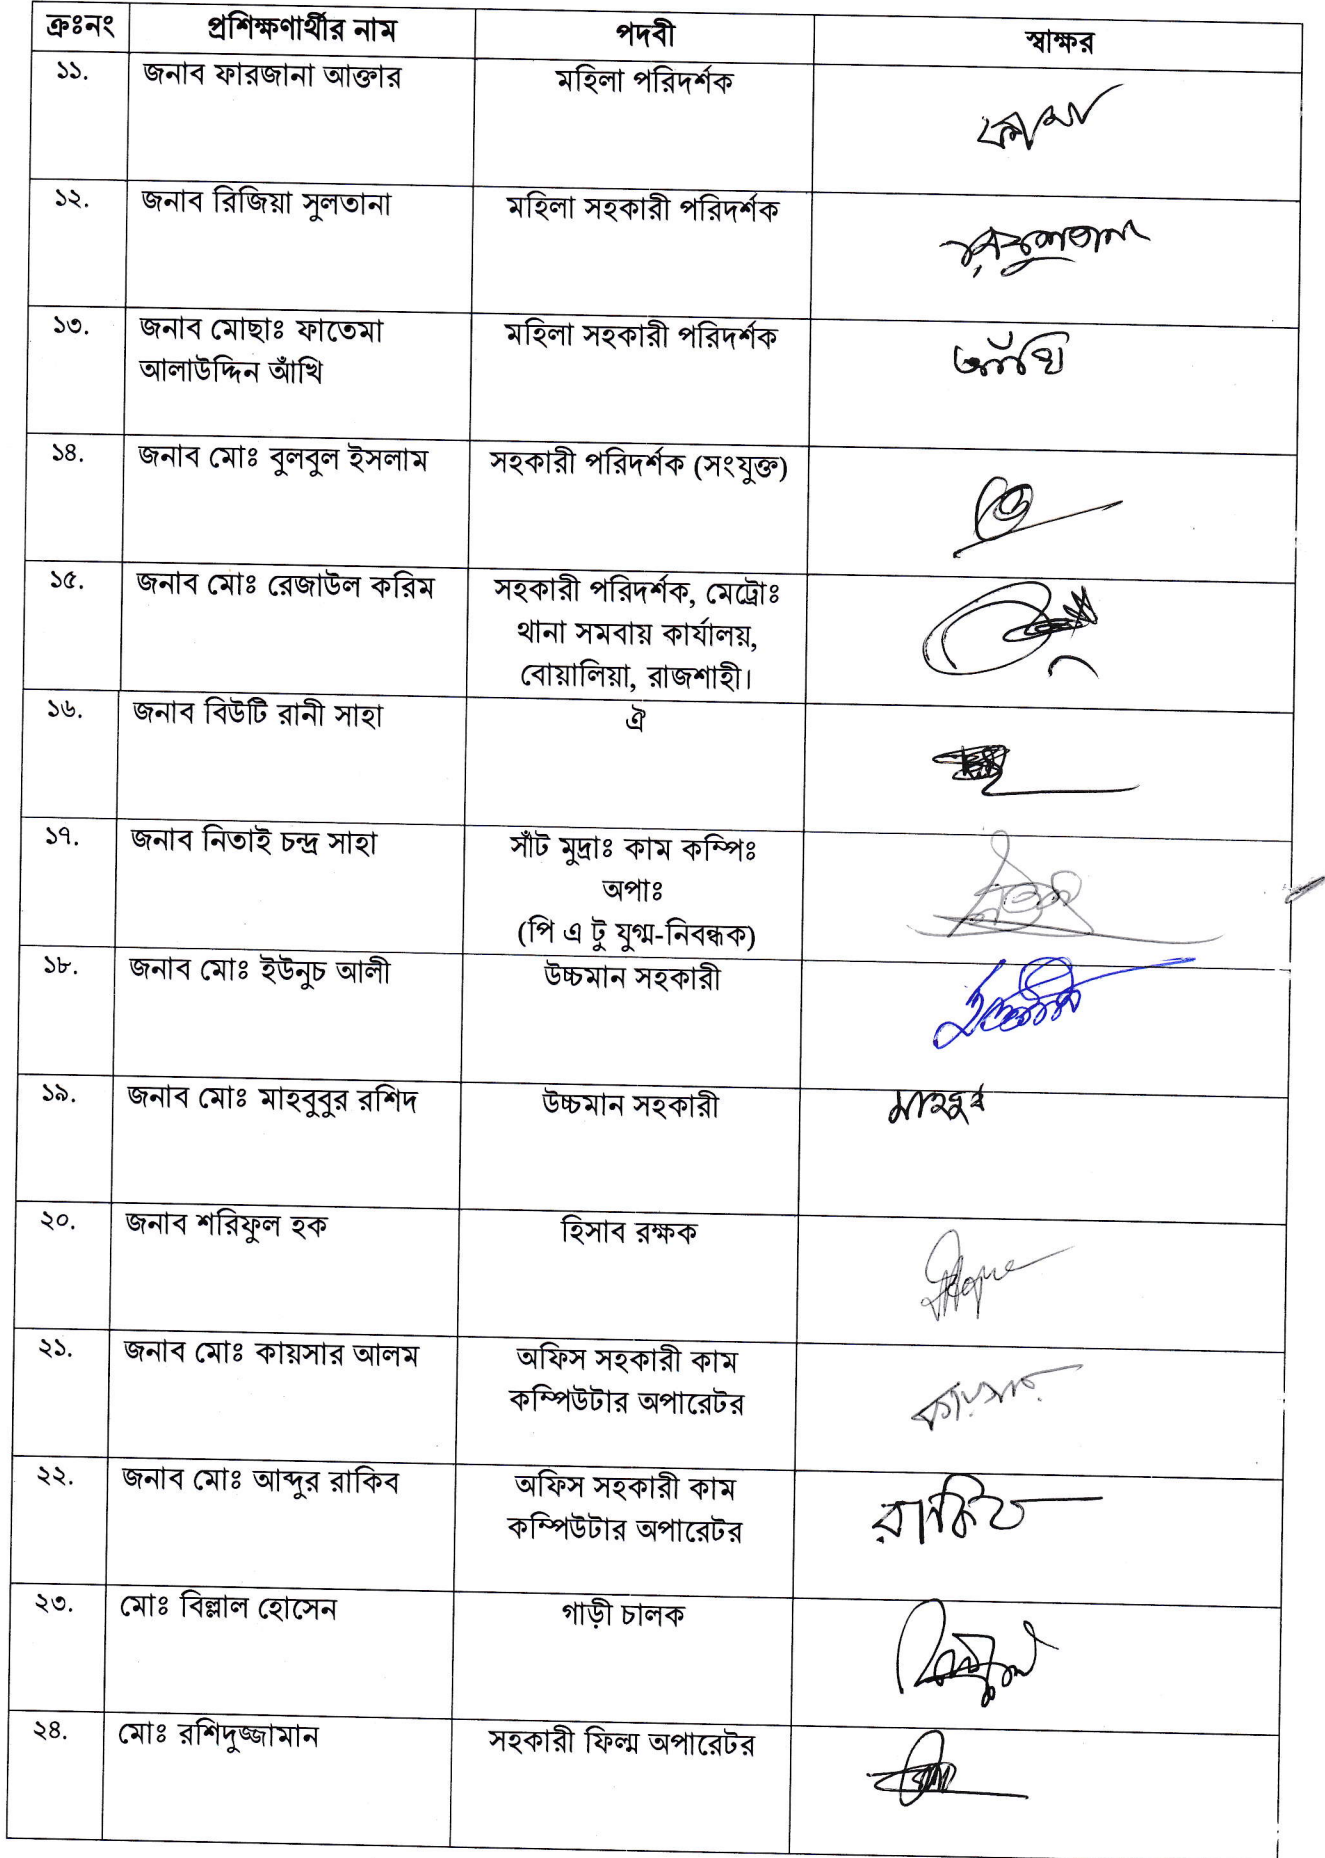 ক্রঃনং প্রশিক্ষণার্থীর নাম পদবী স্বাক্ষর
১১. জনাব ফারজানা আক্তার মহিলা পরিদর্শক
১২. জনাব রিজিয়া সুলতানা মহিলা সহকারী পরিদর্শক
১৩. জনাব মোছাঃ ফাতেমা মহিলা সহকারী পরিদর্শক আঁখি
আলাউদ্দিন আঁখি
১৪. জনাব মোঃ বুলবুল ইসলাম সহকারী পরিদর্শক (সংযুক্ত)
১৫. জনাব মোঃ রেজাউল করিম সহকারী পরিদর্শক, মেট্রোঃ
থানা সমবায় কার্যালয়,
বোয়ালিয়া, রাজশাহী।
১৬. জনাব বিউটি রানী সাহা ঐ
১৭. জনাব নিতাই চন্দ্র সাহা সাঁট মুদ্রাঃ কাম কম্পিঃ
অপাঃ
(পি এ টু যুগ্ম-নিবন্ধক)
১৮. জনাব মোঃ ইউনুচ আলী উচ্চমান সহকারী
১৯. জনাব মোঃ মাহবুবুর রশিদ উচ্চমান সহকারী
২০. জনাব শরিফুল হক হিসাব রক্ষক
২১. জনাব মোঃ কায়সার আলম অফিস সহকারী কাম
কম্পিউটার অপারেটর কায়সার
২২. জনাব মোঃ আব্দুর রাকিব অফিস সহকারী কাম
কম্পিউটার অপারেটর রাকিব
২৩. মোঃ বিল্লাল হোসেন গাড়ী চালক
২৪. মোঃ রশিদুজ্জামান সহকারী ফিল্ম অপারেটর